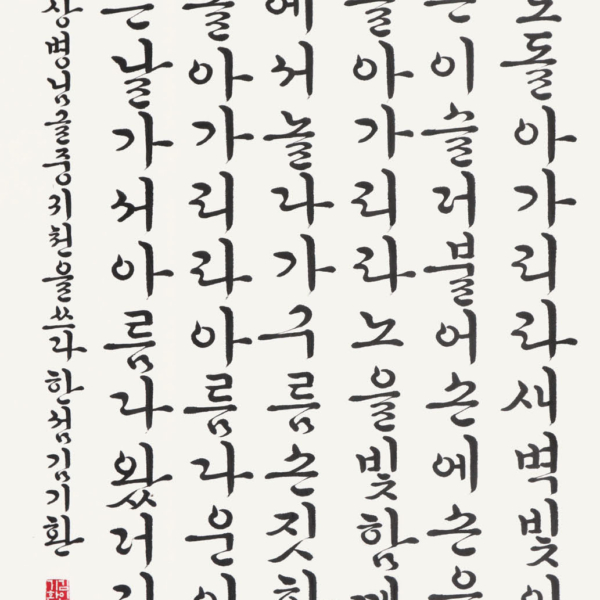 돌아가리라새벽빛
는이슬더불어손에손을
돌아가리라노을빛함께
에서놀다가구름손짓하
돌아가리라아름다운이
는날가서아름다왔더
상병님글중귀천을쓰다 한섬김기환